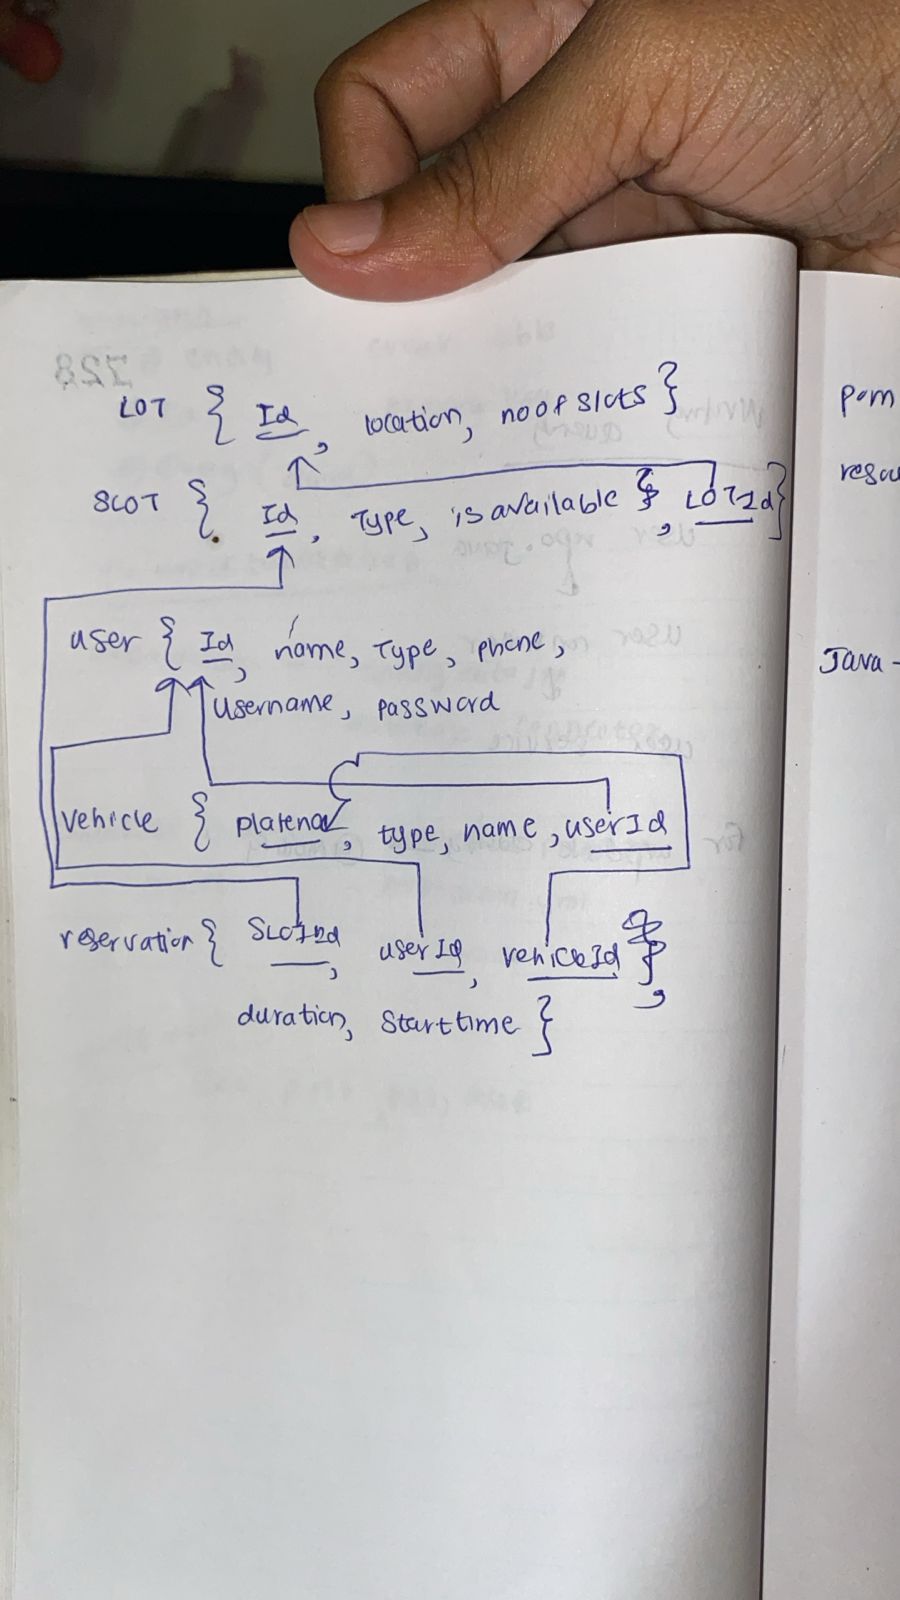 LOT { Id, location, no of slots }
SLOT { Id, Type, is available, LOTId }
user { Id, name, Type, phone,
username, password
vehicle { plateno, type, name, userId
reservation { SLOTId, userId, vehicleId,
duration, Starttime }
pom
Java -